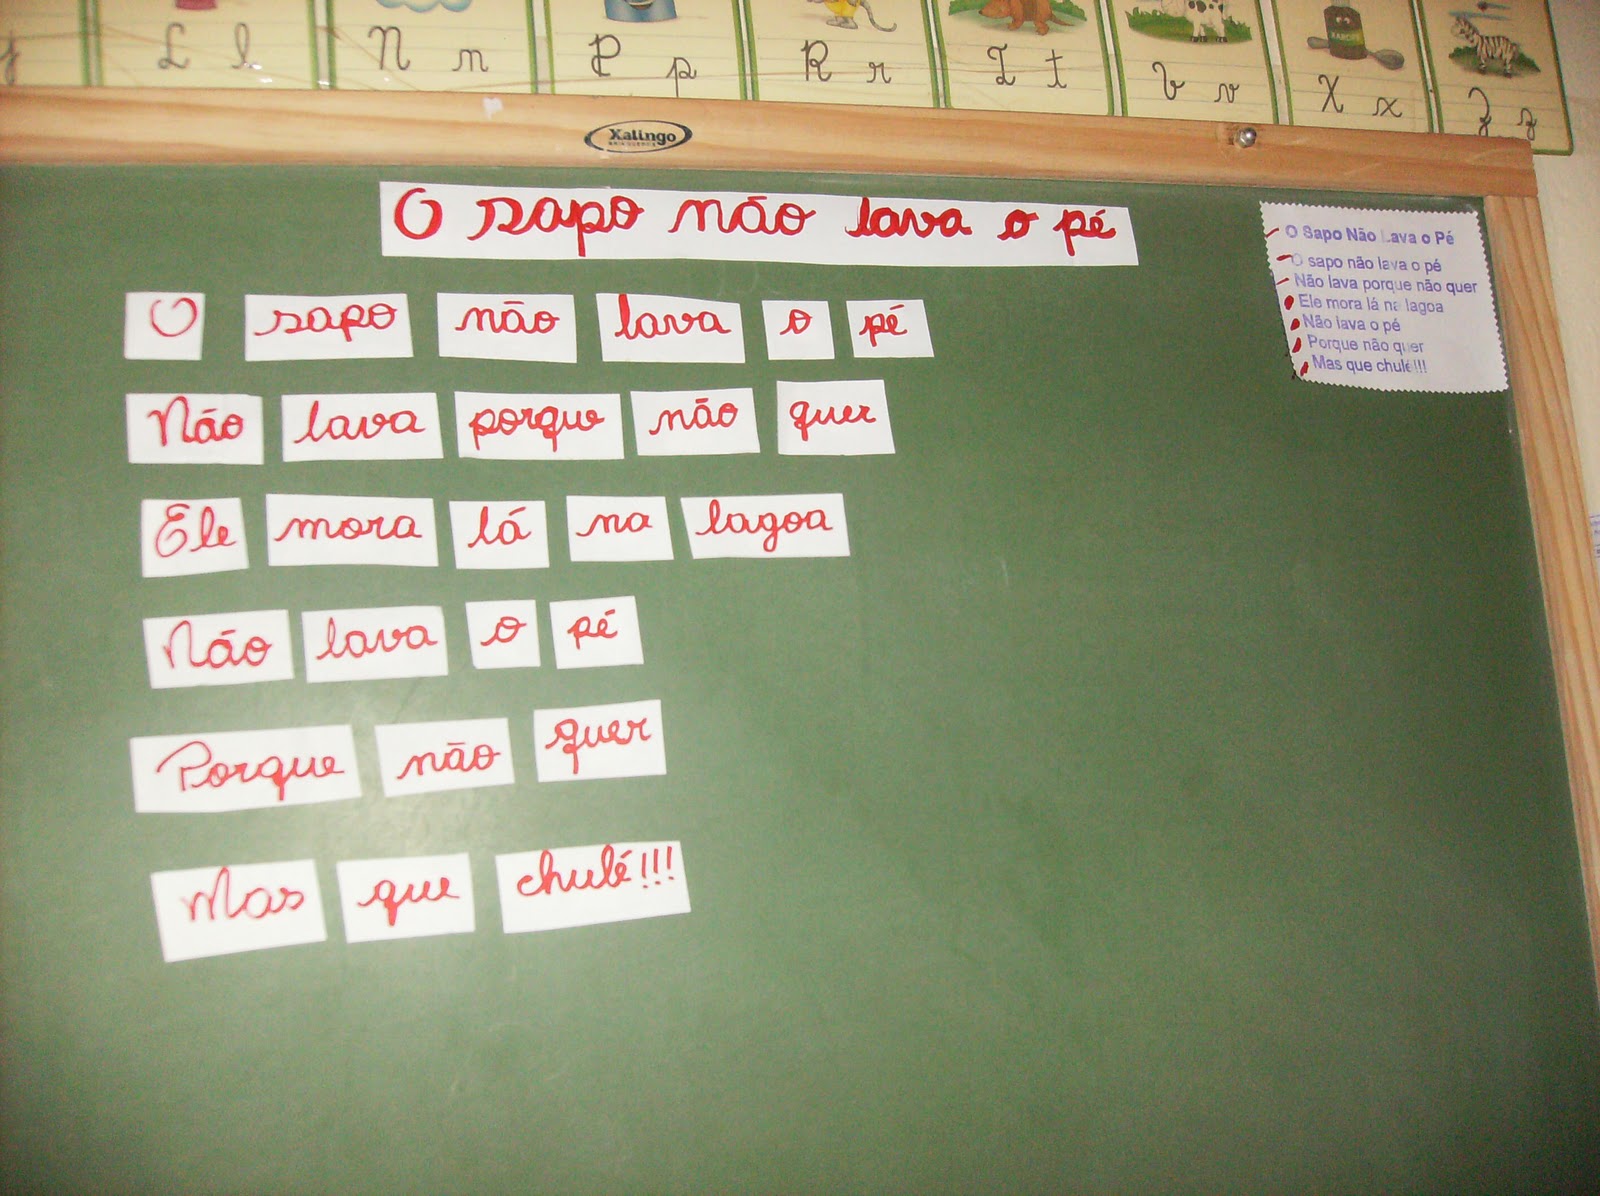 L l N n P p R r T t V v X x Z z
Xalingo
O sapo não lava o pé
O sapo não lava o pé
Não lava porque não quer
Ele mora lá na lagoa
Não lava o pé
Porque não quer
Mas que chulé!!!
O Sapo Não Lava o Pé
O sapo não lava o pé
Não lava porque não quer
Ele mora lá na lagoa
Não lava o pé
Porque não quer
Mas que chulé!!!